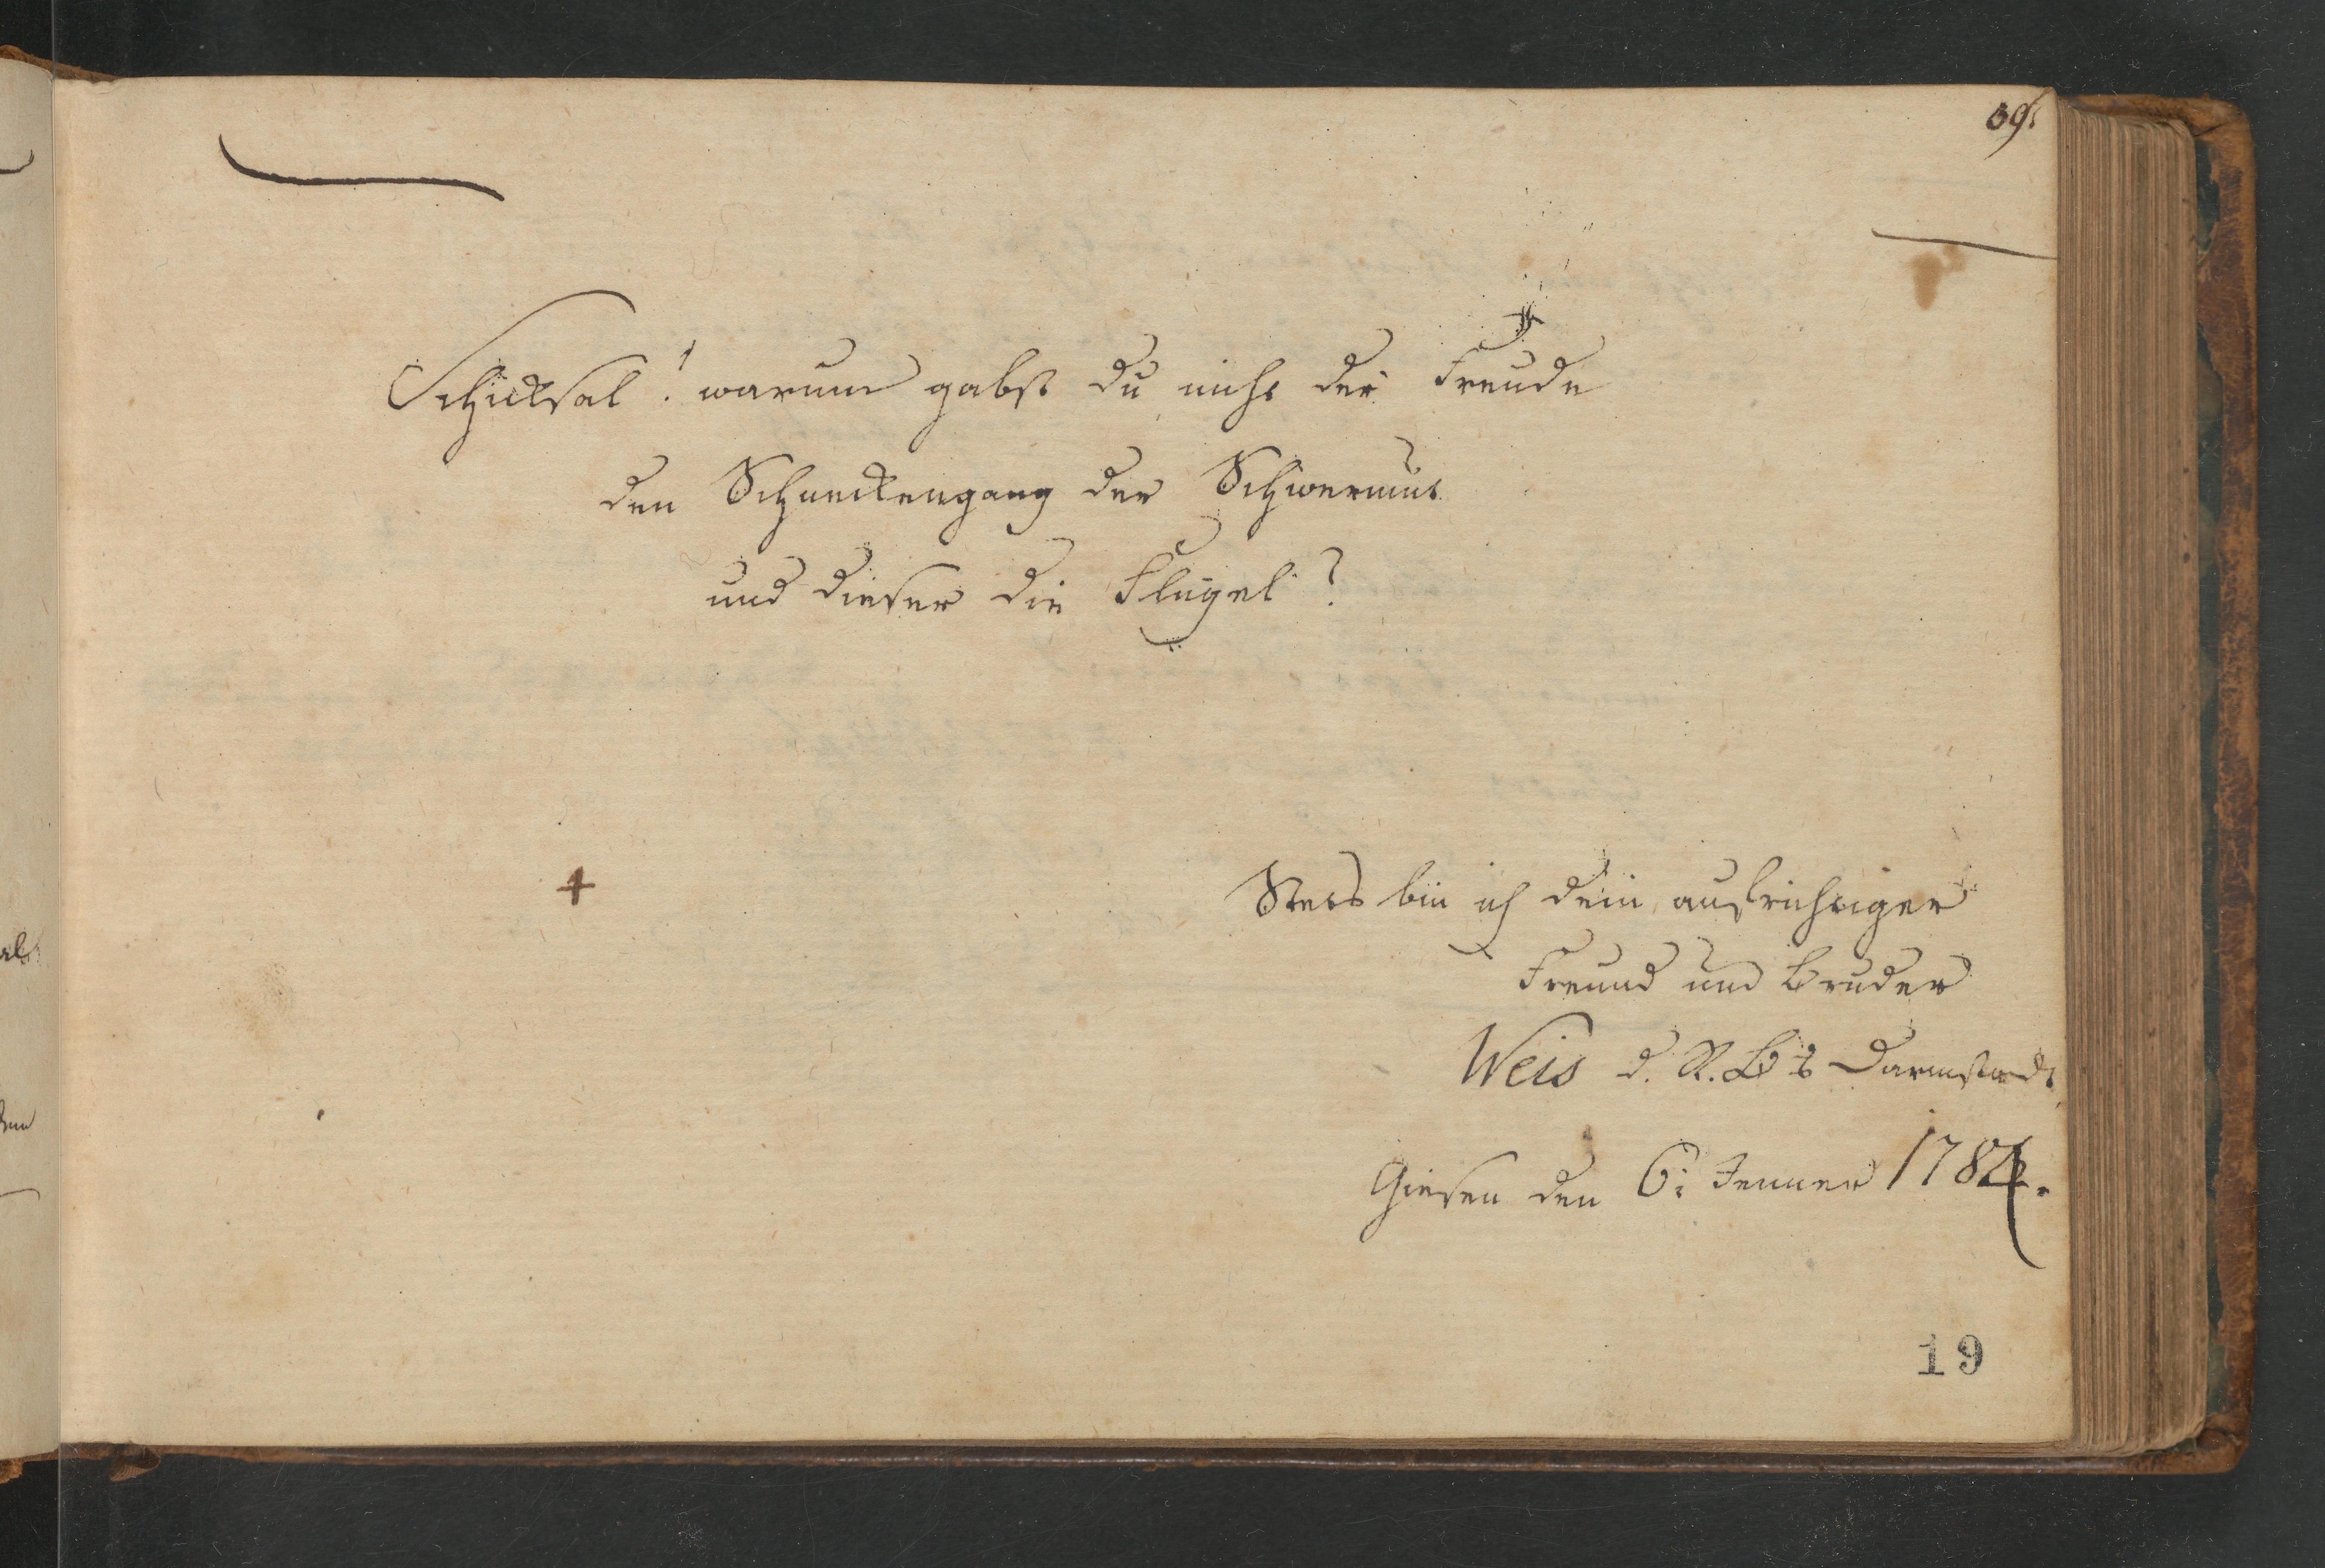 39.
Schicksal! warum gabst du nicht der Freude
den Schneckengang der Schwermut
und dieser die Flügel?
Stets bin ich dein aufrichtiger
Freund und Bruder
Weis d. R. B. Darmstadt
Giesen den 6: Jenner 1784.
19